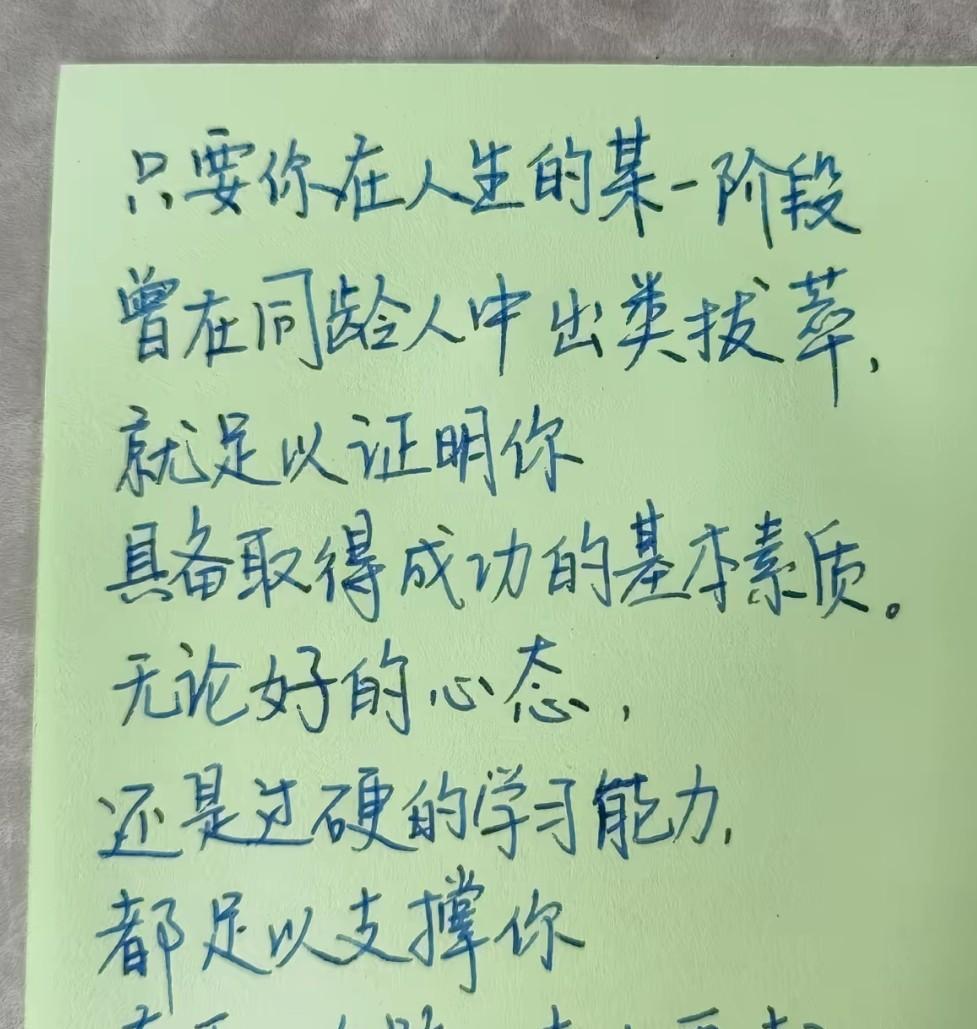 只要你在人生的某一阶段
曾在同龄人中出类拔萃，
就足以证明你
具备取得成功的基本素质。
无论好的心态，
还是过硬的学习能力，
都足以支撑你